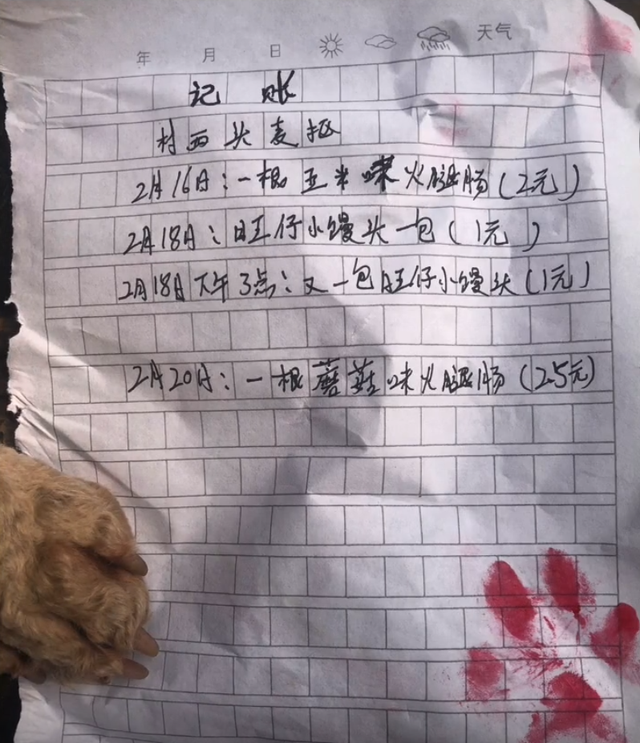 年 月 日 天气
记账
村西头麦抠
2月16日：一根玉米味火腿肠（2元）
2月18日：旺仔小馒头一包（1元）
2月18日下午3点：又一包旺仔小馒头（1元）
2月20日：一根蘑菇味火腿肠（2.5元）